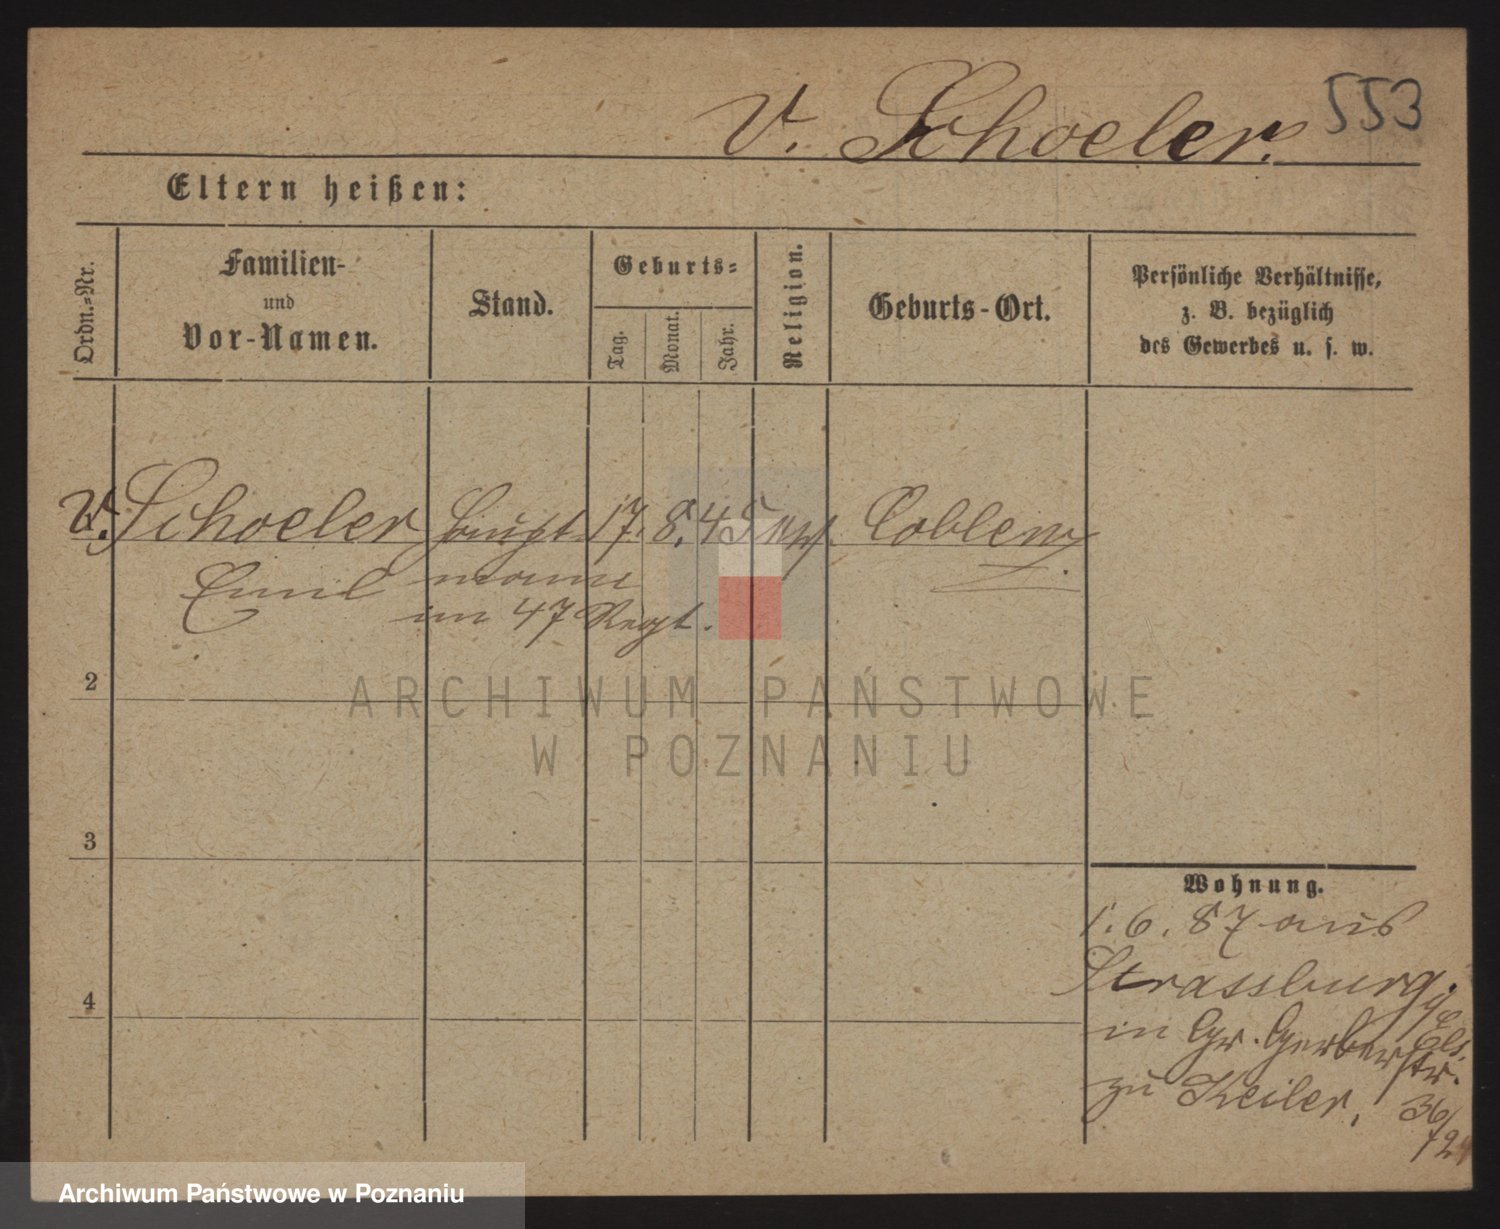 v. Schoeler. 553
Eltern heißen:
Ordn.=Nr.
Familien-
und
Vor-Namen.
Stand.
Geburts=
Tag.
Monat.
Jahr.
Religion.
Geburts-Ort.
Persönliche Verhältnisse,
z. B. bezüglich
des Gewerbes u. s. w.
v. Schoeler Haupt 17. 8. 45 Coblenz
Emil mann
im 47 Regt.
2
3
4
Wohnung.
1. 6. 87 aus
Strassburg
Els.
in Gr. Gerberstr.
zu Keiler, 36/
ARCHIWUM PAŃSTWOWE
W POZNANIU
Archiwum Państwowe w Poznaniu